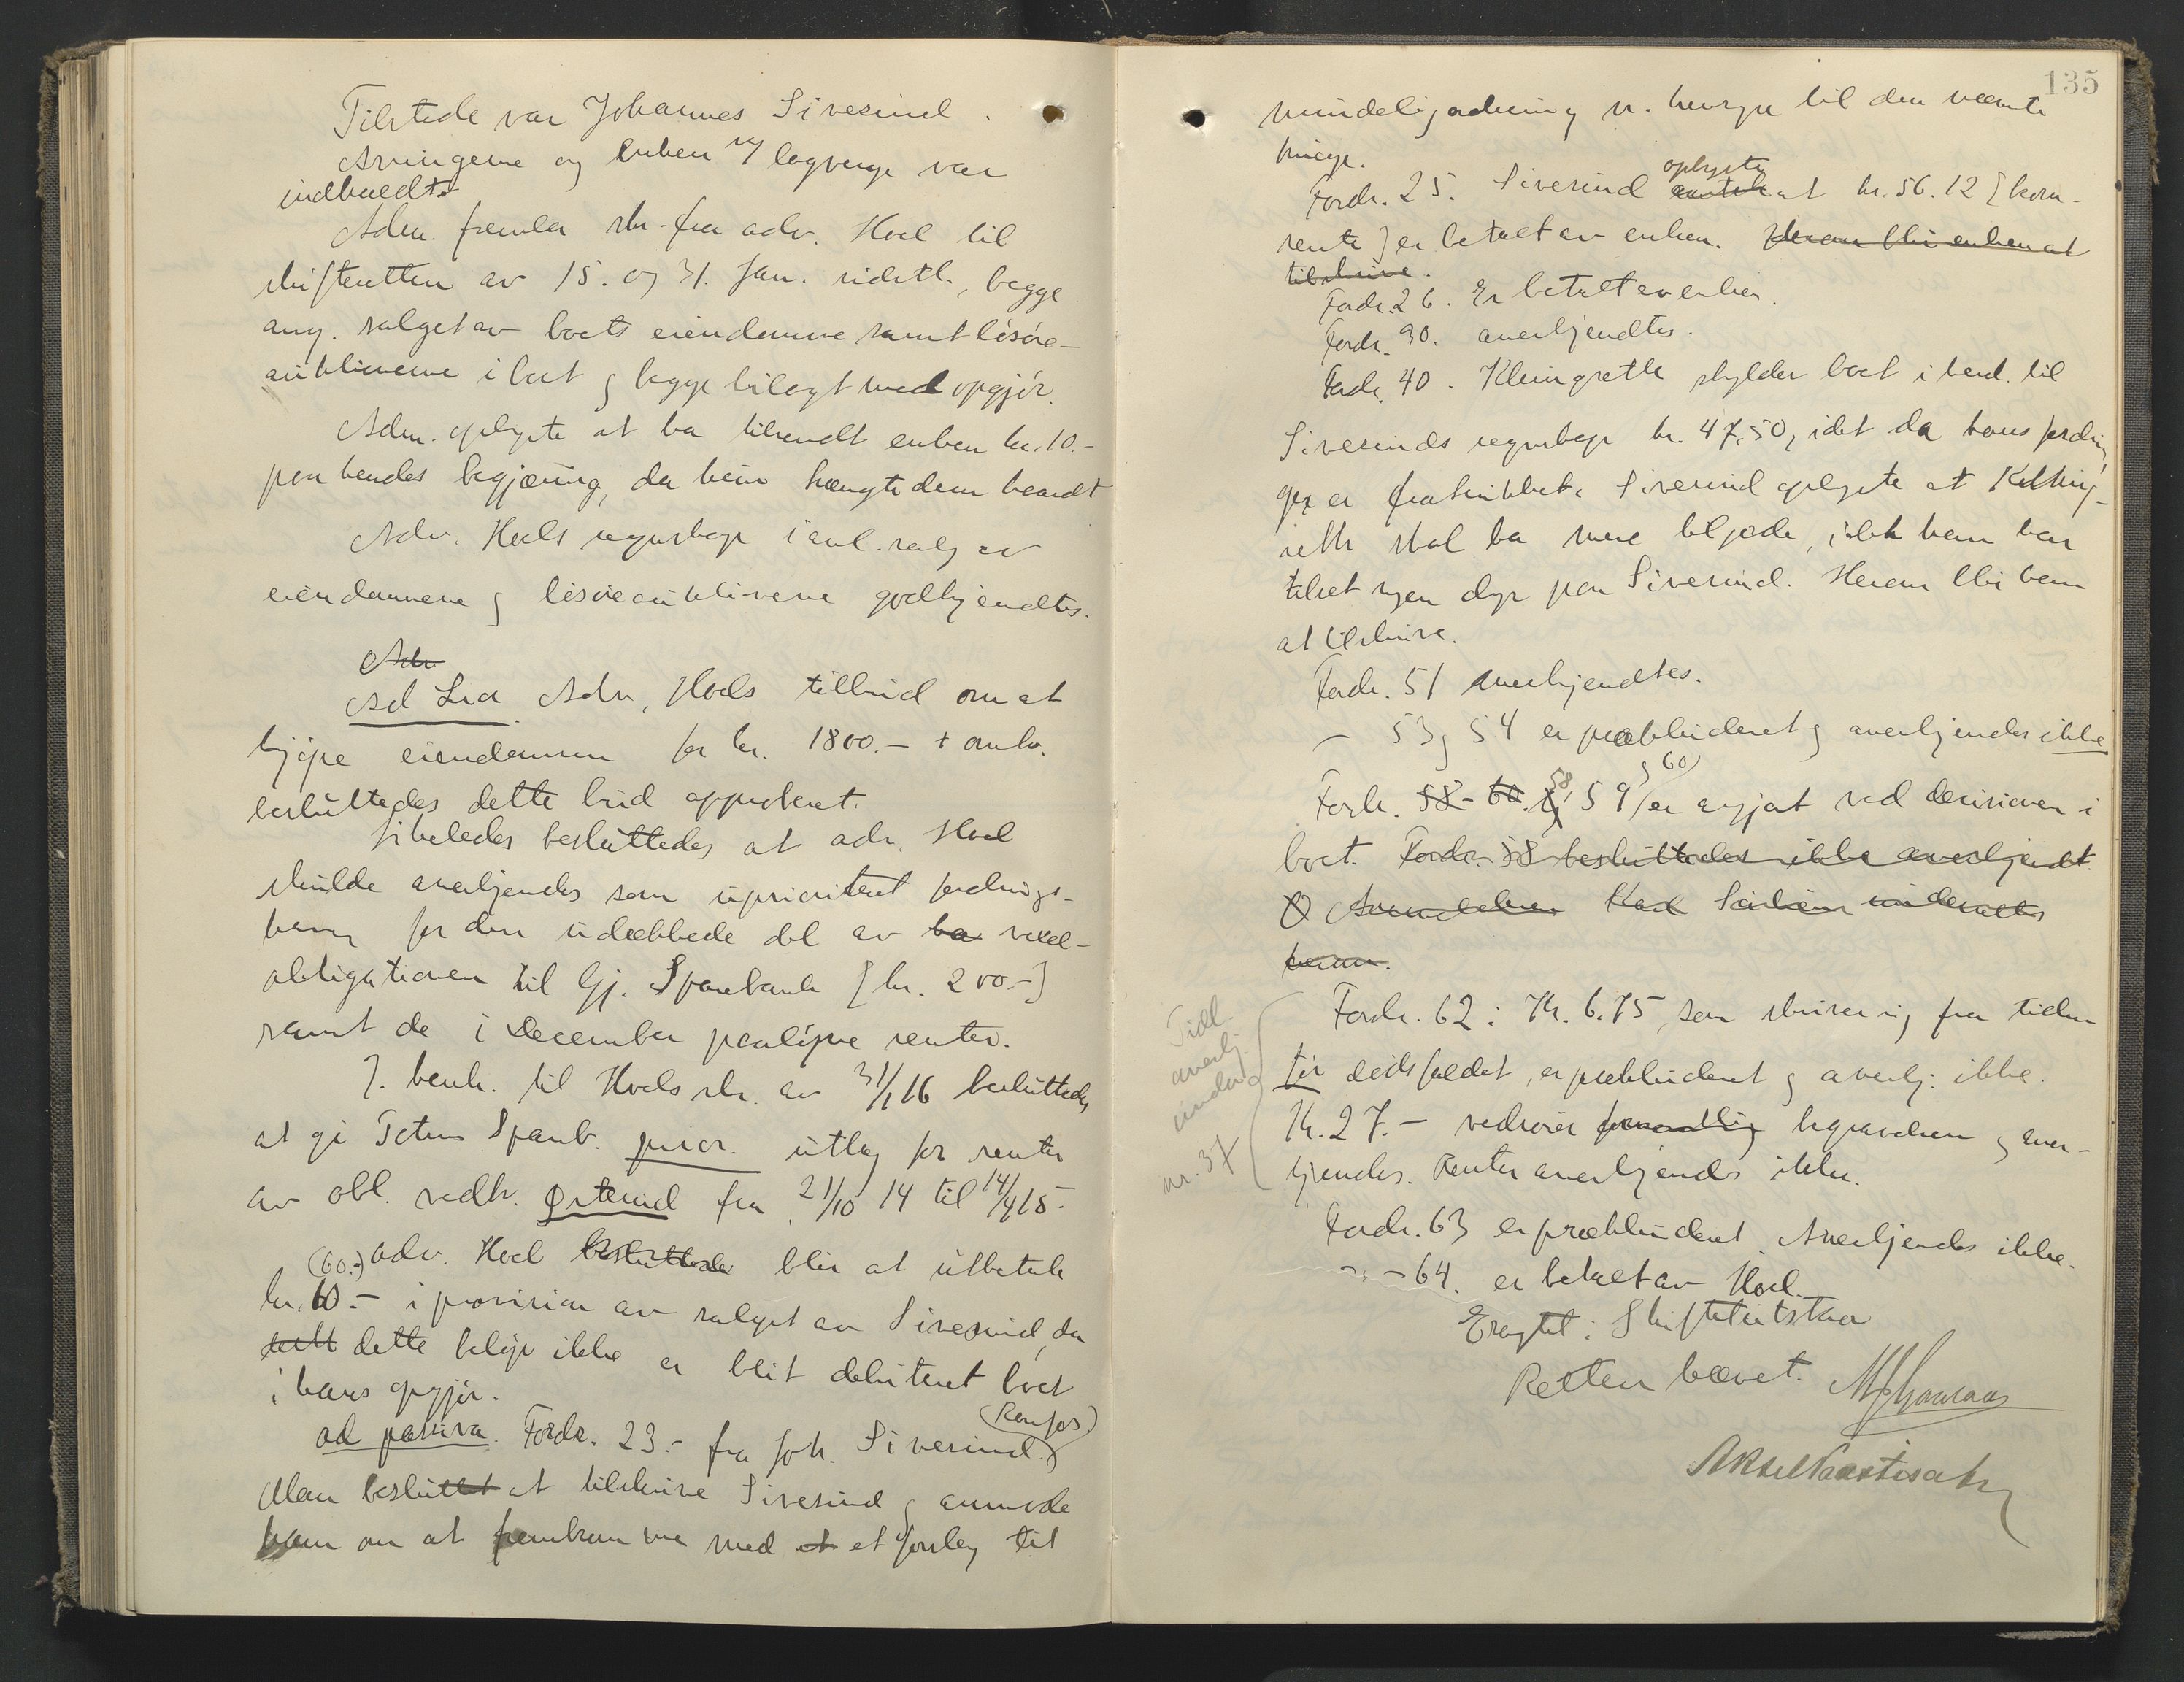 Tilstede var Johannes Sivesind.
Arvingerne og enken m/ lagverge var
indkaldt.
Adm. fremla skr. fra adv. Hoel til
skifteretten av 15. og 31. Jan. sidstl., begge
ang. salget av boets eiendomme samt løsøre-
auktionerne i boet og begge bilagt med opgjør.
Adm. oplyste at ha tilsendt enken kr. 10.-
paa hendes begjæring, da hun trængte dem haardt
Adv. Hoels regnskap i anl. salg av
eiendommene og løsøreauktionene godkjendtes.
Adv
Ad Lia. Adv. Hoels tilbud om at
kjøpe eiendommen for kr. 1800.- + omk.
besluttedes dette bud approbert.
Likeledes besluttedes at adv. Hoel
skulde anerkjendes som uprioritert fordrings-
haver for den udækkede del av ha vexel-
obligationen til Gj. Sparebank [kr. 200.-]
samt de i December paaløpne renter.
I. henh. til Hoels skr. av 31/1 16 besluttedes
at gi Totens Spareb. prior. utlæg for renter
av obl. vedk. Østeind fra 21/10 14 til 14/4 15.
(60.-) adv. Hoel besluttede blir at utbetale
kr. 60.- i provision av salget av Sivesind, da
dette beløp ikke er blit debitert boet
i hans opgjør.
(Raufos)
ad passiva. Fordr. 23.- fra Joh. Sivesind.
Man besluttet at tilskrive Sivesind og anmode
ham om at fremkomme med et et forslag til
135
mindeligordning m. hensyn til den nævnte
oplyste
Fordr. 25. Sivesind at kr. 56.12 [ -
rente] er betalt av enken. Herom blir enken at
tilskrive.
Fordr. 26. Er betalt av enken.
Fordr. 30. anerkjendtes.
Fordr. 40. skylder boet i hend. til
Sivesinds regnskap kr. 47,50, idet da hans fordrin-
ger er fratrukket. Sivesind oplyste at
skal ha mere tilgode, idet han har
tilset syen dyr paa Sivesind. Herom blir ham
at tilskrive.
Fordr. 51 anerkjendtes.
- 53 og 54 er prækludert og anerkjendes ikke
58, og 60
Fordr. 58 - 60. og 59 er avgjort ved decisionen i
boet. Fordr. 58 besluttedes ikke anerkjendt.
Karl underrettes
herom.
Tidl.
anerkj.
under
nr. 37
Fordr. 62: Kr. 6.75 som skriver sig fra tiden
før dødsfaldet, er prækludert og anerkj. ikke.
Kr. 27.- vedrører begravelsen og aner-
kjendes. Renter anerkjendes ikke.
Fordr. 63 er prækludert. Anerkjendes ikke.
- " - 64. er betalt av Hoel.
Eragtet: Skiftet utstaa
Retten hævet.